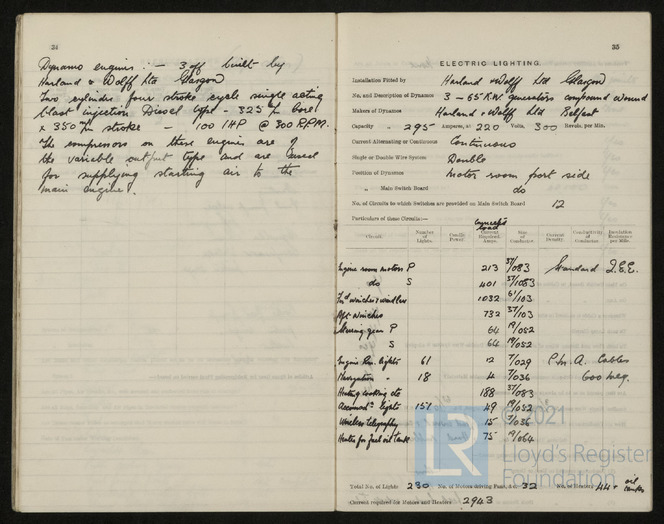 34
Dynamo engines :- 3 off built by
Harland & Wolff Ltd Glasgow
Two cylinder four stroke cycle single acting
blast injection Diesel type - 325 m/m bore
x 350 m/m stroke - 100 IHP @ 300 R.P.M.
The compressors on these engines are of
the variable output type and are used
for supplying starting air to the
main engine.
35
ELECTRIC LIGHTING.
Installation Fitted by Harland & Wolff Ltd Glasgow
No. and Description of Dynamos 3 - 65 K.W. generators compound wound
Makers of Dynamos Harland & Wolff Ltd Belfast
Capacity - 295 Amperes, at 220 Volts, 300 Revols. per Min.
Current Alternating or Continuous Continuous
Single or Double Wire System Double
Position of Dynamos Motor room port side
„ Main Switch Board do
No. of Circuits to which Switches are provided on Main Switch Board 12
Particulars of these Circuits:—
Connected load
Circuit. Number of Lights. Candle Power. Current Required. Amps. Size of Conductor. Current Density. Conductivity of Conductor. Insulation Resistance per Mile.
Engine room motors P 213 37/083 Standard I.E.E.
do S 401 37/1083
For'd winches & windlass 1032 61/103
Aft winches 732 37/103
Steering gear P 64 19/052
S 64 19/052
Engine Rm. lights 61 12 7/029 Cables
Navigation " 18 4 7/036 600 meg.
Heating cooking etc 188 37/083
Accomodn lights 151 49 19/052
Wireless telegraphy 15 7/036
Heater for fuel oil tank 75 19/064
Total No. of Lights 230 No. of Motors driving Fans, &c. 32 No. of Heaters 44 + oil
Current required for Motors and Heaters 2943
LR
© 2021
Lloyd's Register
Foundation